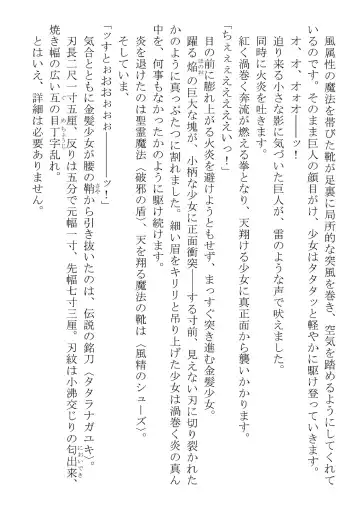 風属性の魔法を帯びた靴が足裏に局所的な突風を巻き、空気を踏めるようにしてくれて
いるのです。そのまま巨人の顔目がけ、少女はタタタッと軽やかに駆け登っていきます。
オ、オ、オォオーーッ！
迫り来る小さな影に気づいた巨人が、雷のような声で吠えました。
同時に火炎を吐きます。
紅く渦巻く奔流が燃える拳となり、天翔ける少女に真正面から襲いかかります。
「ちぇぇぇえええええいっ！」
目の前に膨れ上がる火炎を避けようともせず、まっすぐ突き進む金髪少女。
躍る焔の巨大な塊が、小柄な少女に正面衝突――する寸前、見えない刃に切り裂かれた
かのように真っぷたつに割れました。細い眉をキリリと吊り上げた少女は渦巻く炎の真ん
中を、何事もなかったかのように駆け続けます。
炎を退けたのは聖霊魔法〈破邪の盾〉、天を翔る魔法の靴は〈風精のシューズ〉。
そしていま、
「ッすとぉおおぉぉぉ――――ッ！」
気合とともに金髪少女が腰の鞘から引き抜いたのは、伝説の銘刀〈タタラナガユキ〉。
刃長二尺一寸五厘、反りは五分で元幅一寸、先幅七寸三厘。刃紋は小沸交じりの匂出来、
焼き幅の広い互の目丁字乱れ。
とはいえ、詳細は必要ありません。